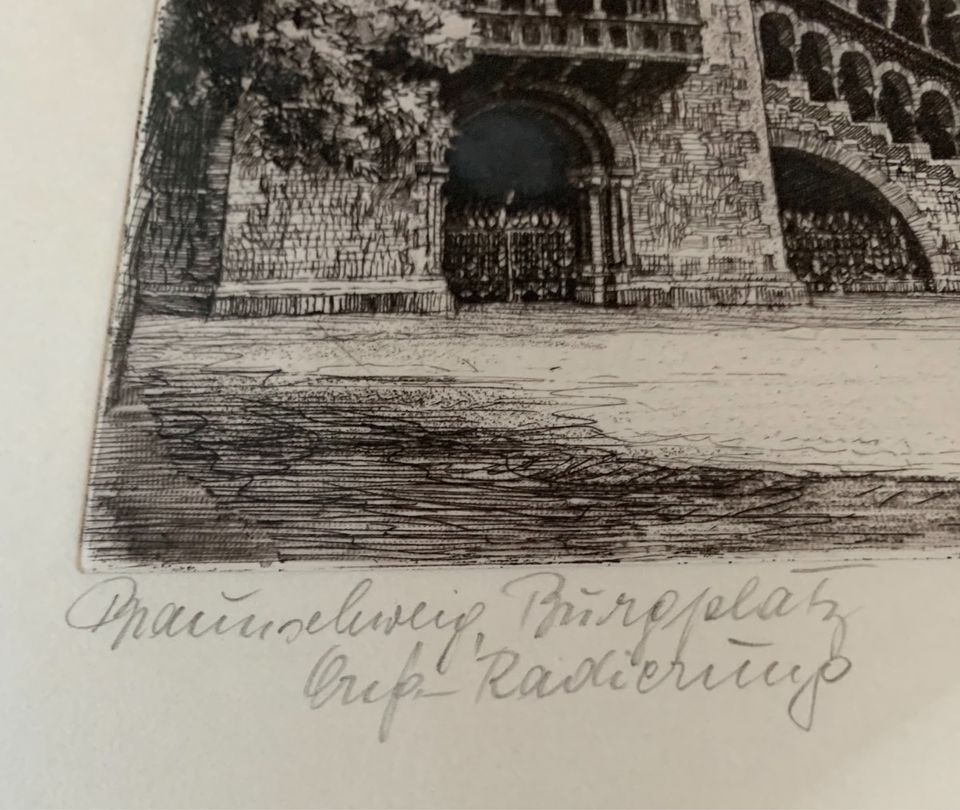 Braunschweig, Burgplatz
Orig.-Radierung